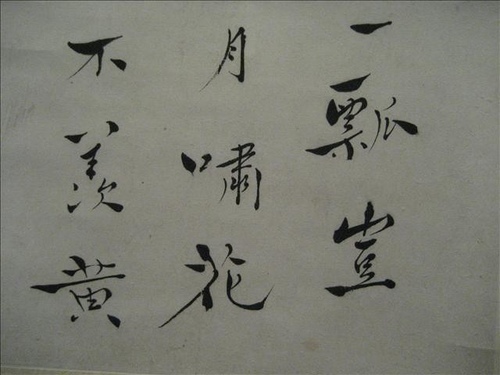 一瓢豈
月嘯花
不羨黄